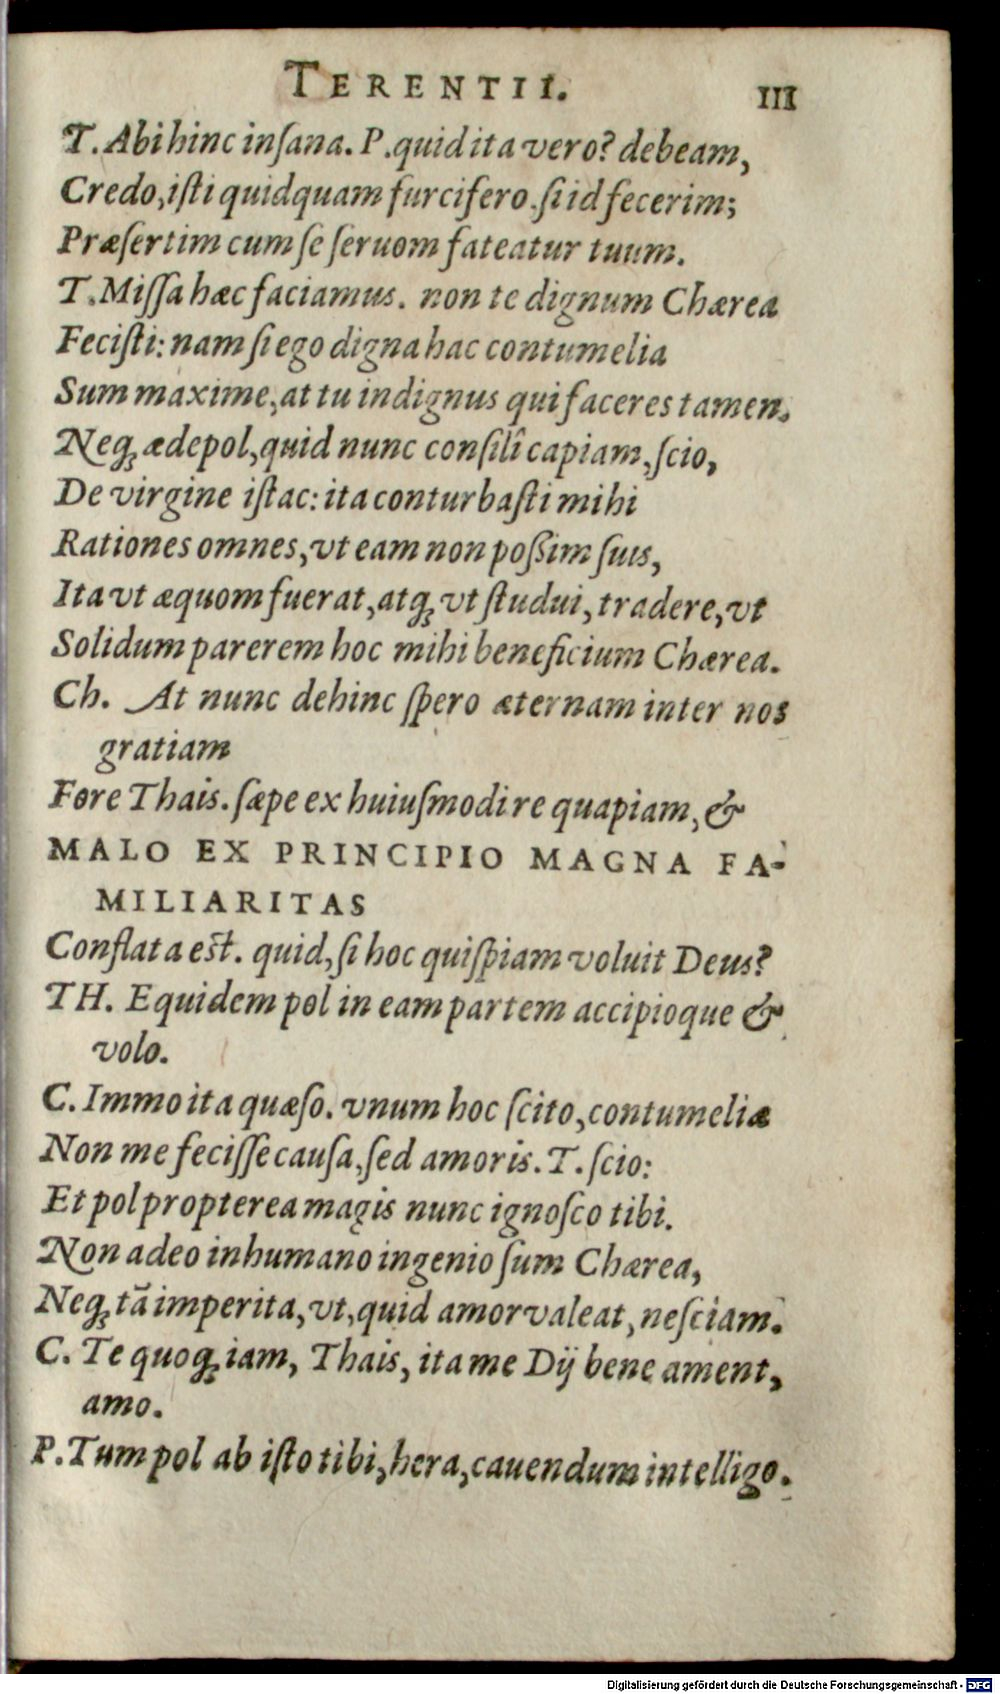 TERENTII. III
T. Abi hinc inſana. P. quid ita vero? debeam,
Credo, iſti quidquam furcifero. ſi id fecerim;
Præſertim cum ſe ſeruom fateatur tuum.
T. Miſſa hæc faciamus. non te dignum Chærea
Feciſti: nam ſi ego digna hac contumelia
Sum maxime, at tu indignus qui faceres tamen.
Neq; ædepol, quid nunc conſilî capiam, ſcio,
De virgine iſtac: ita conturbaſti mihi
Rationes omnes, vt eam non poßim ſuis,
Ita vt æquom fuerat, atq; vt ſtudui, tradere, vt
Solidum parerem hoc mihi beneficium Chærea.
Ch. At nunc dehinc ſpero æternam inter nos
gratiam
Fore Thais. ſæpe ex huiuſmodi re quapiam, &
MALO EX PRINCIPIO MAGNA FA-
MILIARITAS
Conflata eſt. quid, ſi hoc quiſpiam voluit Deus?
TH. Equidem pol in eam partem accipioque &
volo.
C. Immo ita quæſo. vnum hoc ſcito, contumeliæ
Non me feciſſe cauſa, ſed amoris. T. ſcio:
Et pol propterea magis nunc ignoſco tibi.
Non adeo inhumano ingenio ſum Chærea,
Neq; tã imperita, vt, quid amor valeat, neſciam.
C. Te quoq; iam, Thais, ita me Dij bene ament,
amo.
P. Tum pol ab iſto tibi, hera, cauendum intelligo.
Digitalisierung gefördert durch die Deutsche Forschungsgemeinschaft - DFG